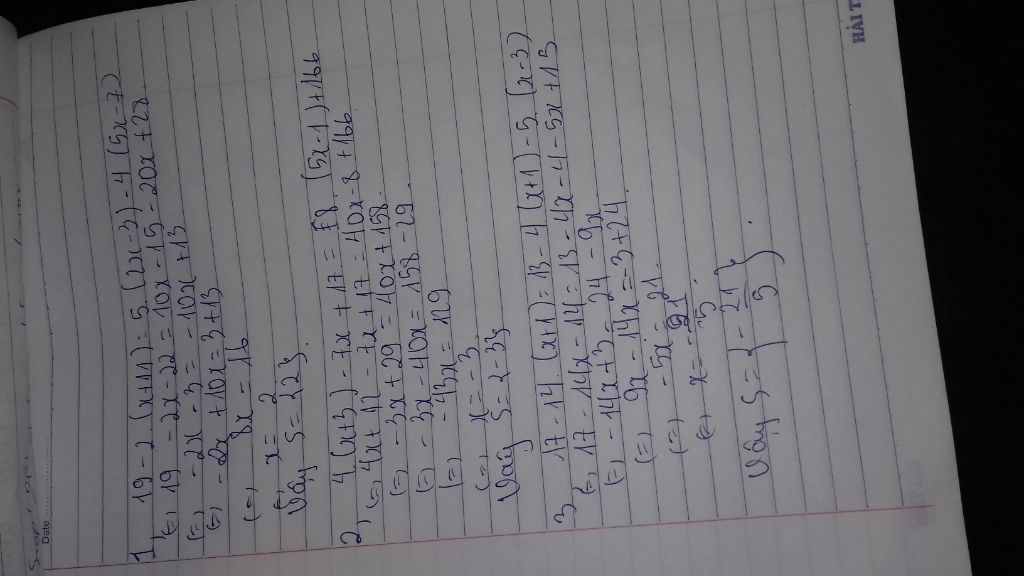 Date
1, 19 - 2 (x+11) = 5 (2x-3) - 4 (5x-7)
(=) 19 - 2x - 22 = 10x - 15 - 20x + 28
(=) -2x - 3 = -10x + 13
(=) -2x + 10x = 3 + 13
(=) 8x = 16
(=) x = 2
Vậy S = {2}
2, 4(x+3) - 7x + 17 = 8 (5x-1) + 166
(=) 4x + 12 - 7x + 17 = 40x - 8 + 166
(=) -3x + 29 = 40x + 158
(=) -3x - 40x = 158 - 29
(=) -43x = 129
(=) x = -3
Vậy S = {-3}
3, 17 - 14 (x+1) = 13 - 4 (x+1) - 5 (x-3)
(=) 17 - 14x - 14 = 13 - 4x - 4 - 5x + 15
(=) -14x + 3 = 24 - 9x
(=) 9x - 14x = -3 + 24
(=) -5x = 21
(=) x = -21/5
Vậy S = {-21/5}
HẢI T